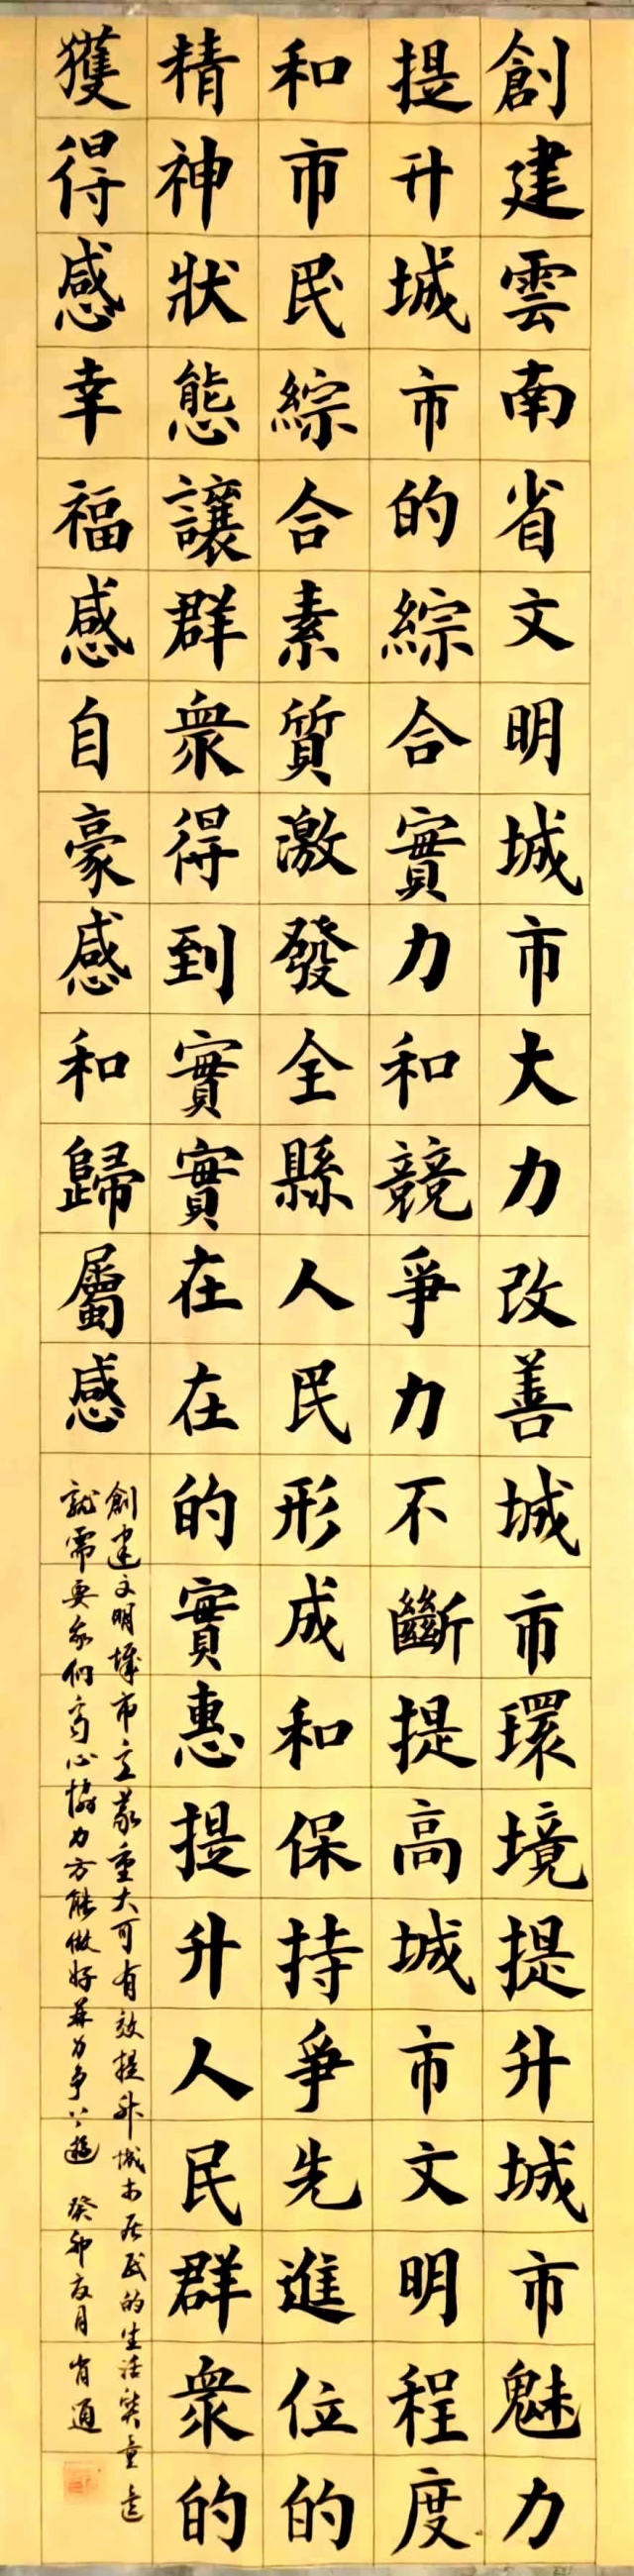 創建雲南省文明城市大力改善城市環境提升城市魅力
提升城市的綜合實力和競爭力不斷提高城市文明程度
和市民綜合素質激發全縣人民形成和保持爭先進位的
精神狀態讓群衆得到實實在在的實惠提升人民群衆的
獲得感幸福感自豪感和歸屬感
創建文明城市意義重大可有效提升城市居民的生活質量這
就需要我們齊心協力方能做好並力爭上游 癸卯夏月 肖通